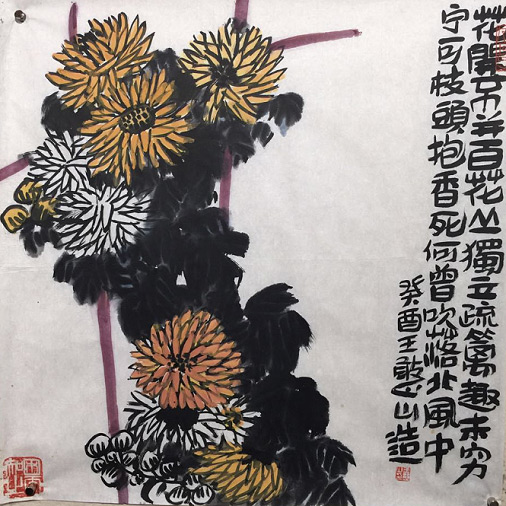 花開不并百花丛獨立疏篱趣未穷
宁可枝頭抱香死何曾吹落北風中
癸酉王憨山造